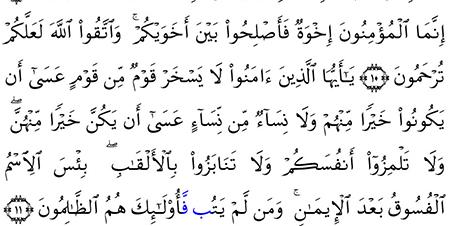 إِنَّمَا ٱلْمُؤْمِنُونَ إِخْوَةٌ فَأَصْلِحُوا۟ بَيْنَ أَخَوَيْكُمْ ۚ وَٱتَّقُوا۟ ٱللَّهَ لَعَلَّكُمْ
تُرْحَمُونَ ﴿١٠﴾ يَـٰٓأَيُّهَا ٱلَّذِينَ ءَامَنُوا۟ لَا يَسْخَرْ قَوْمٌ مِّن قَوْمٍ عَسَىٰٓ أَن
يَكُونُوا۟ خَيْرًا مِّنْهُمْ وَلَا نِسَآءٌ مِّن نِّسَآءٍ عَسَىٰٓ أَن يَكُنَّ خَيْرًا مِّنْهُنَّ ۖ
وَلَا تَلْمِزُوٓا۟ أَنفُسَكُمْ وَلَا تَنَابَزُوا۟ بِٱلْأَلْقَـٰبِ ۖ بِئْسَ ٱلِٱسْمُ
ٱلْفُسُوقُ بَعْدَ ٱلْإِيمَـٰنِ ۚ وَمَن لَّمْ يَتُب فَّأُو۟لَـٰٓئِكَ هُمُ ٱلظَّـٰلِمُونَ ﴿١١﴾